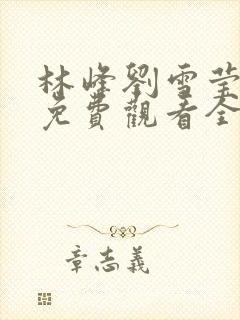 林峰劉雪莹
免費觀看全
章志義